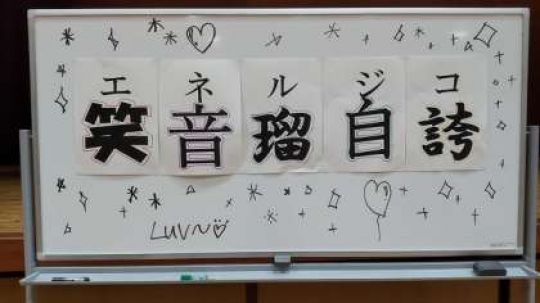 エネルジコ
笑音瑠自誇
LUV～